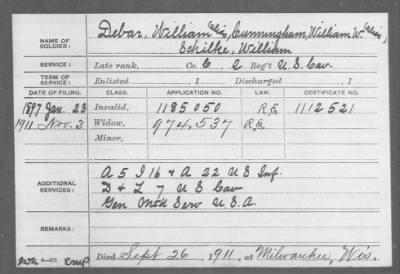 NAME OF SOLDIER: Debar, William alias, Cunningham, William W. alias,
Schilke, William
SERVICE: Late rank, Co. C 2 Reg't U.S. Cav.
TERM OF SERVICE: Enlisted , 1 Discharged , 1
DATE OF FILING. CLASS. APPLICATION NO. LAW. CERTIFICATE NO.
1897 Jan. 23 Invalid, 1185050 R.E. 1112521
1911 Nov. 3 Widow, 974,537 R.E.
Minor,
ADDITIONAL SERVICES: A 5 I 16 & A 22 U S Inf.
D & L 7 U S Cav
Gen Mtd Serv U.S.A.
REMARKS:
Died Sept. 26, 1911, at Milwaukee, Wis.